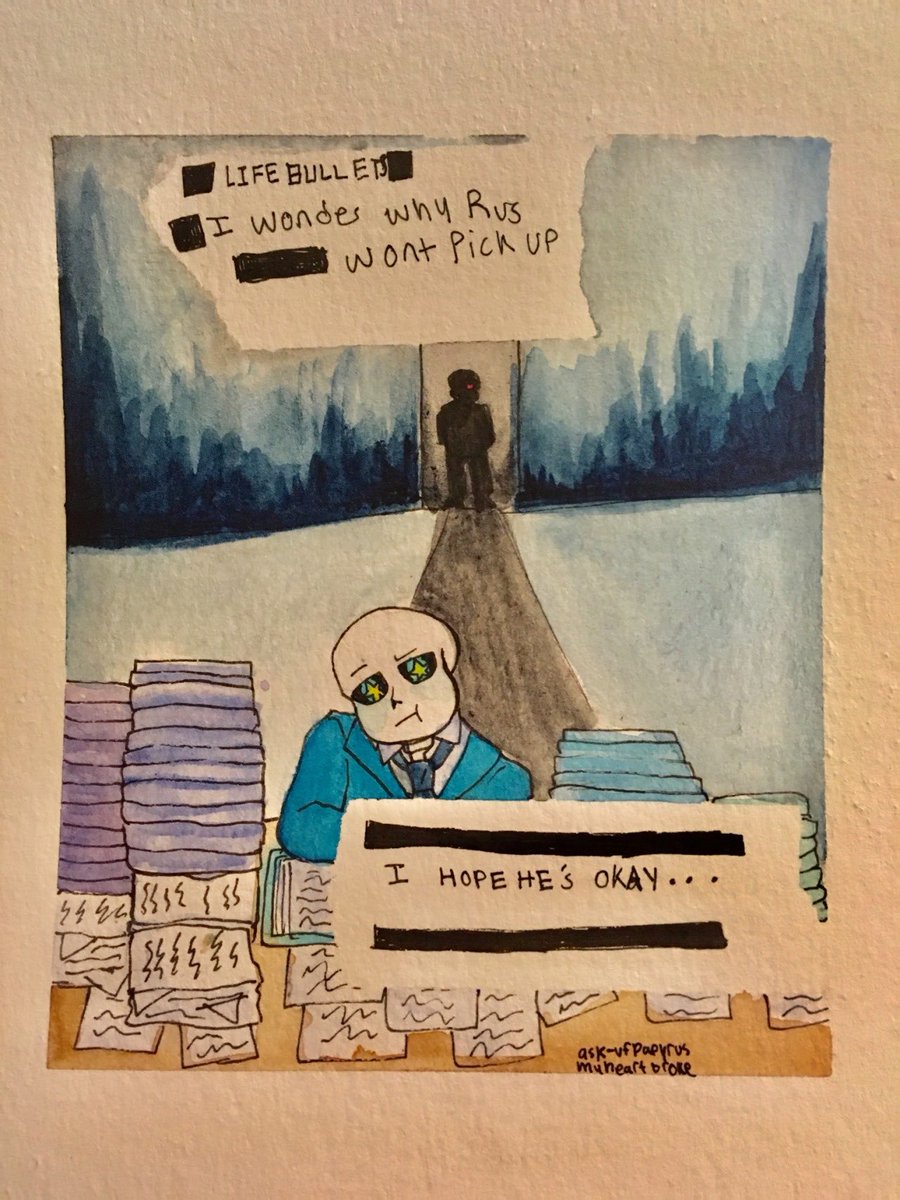 LIFE BULLETS
I wonder why Rus
wont Pick up
I HOPE HE'S OKAY...
ask-ufpapyrus
muheart broke